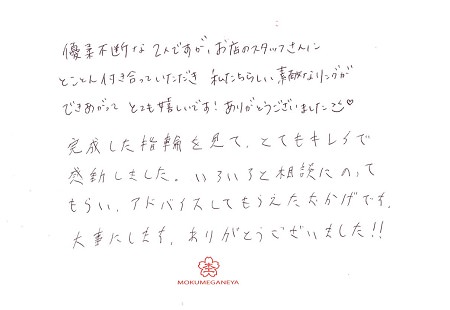 優柔不断な2人ですが、お店のスタッフさんに
とことん付き合っていただき 私たちらしい素敵なリングが
できあがって とても嬉しいです！ありがとうございました♡
完成した指輪を見て、とてもキレイで
感動しました。いろいろと相談にのって
もらい、アドバイスしてもらえたおかげです。
大事にします。ありがとうございました!!
MOKUMEGANEYA